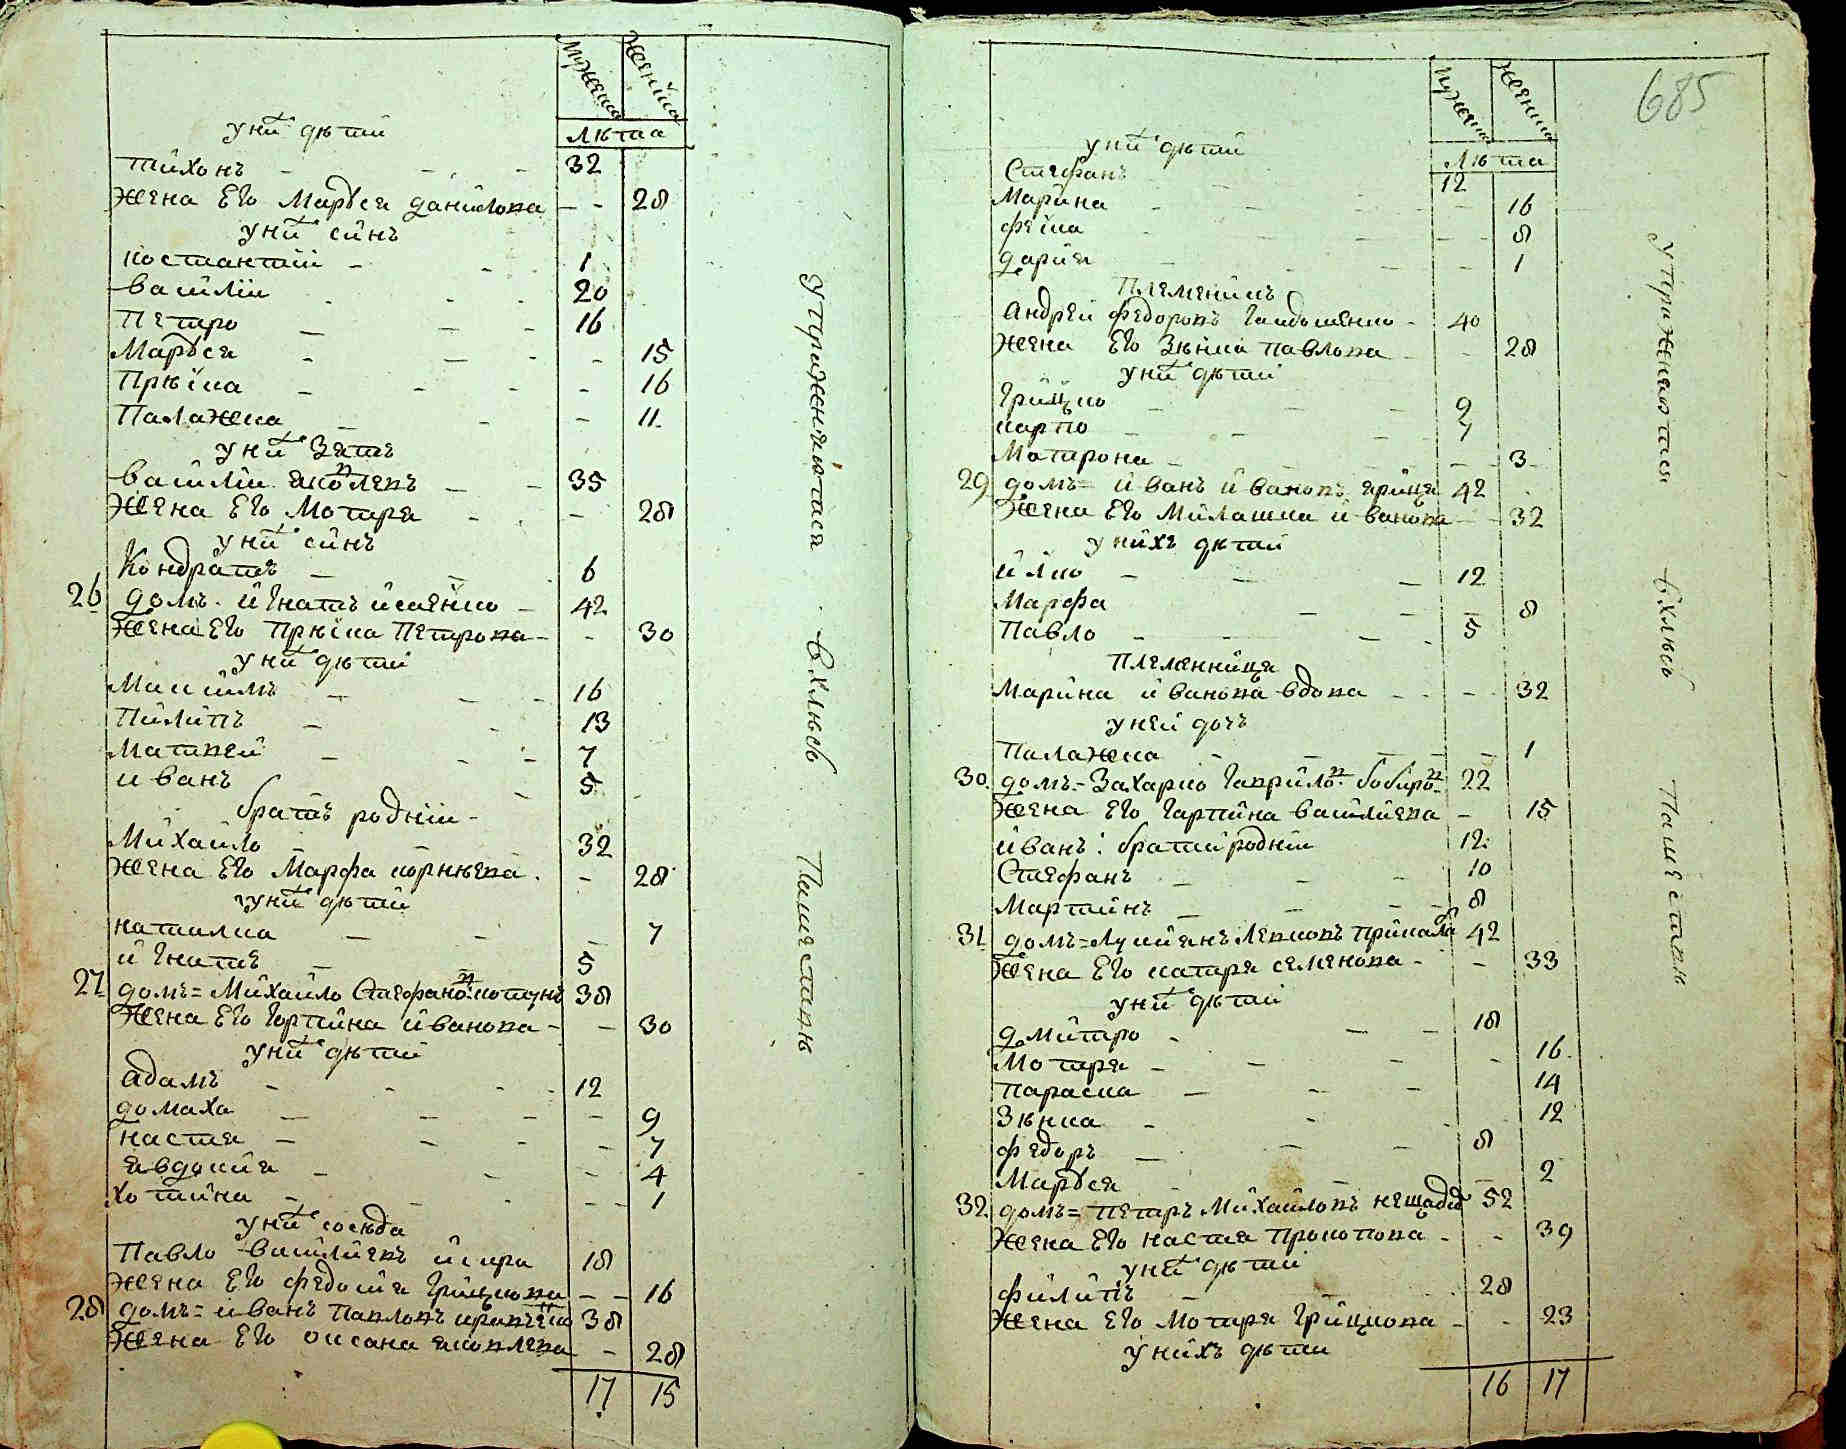 мужеска женска
лѣта
у них дѣтий
тихонъ 32
жена Его Маруся данилова 28
у них синъ
костантий 1
василий 20
Петро 16
Маруся 15
Прѣска 16
Палажка 11
у них зять
василий яковлевъ 35
жена Его Мотря 28
у них синъ
Кондратъ 6
26 домъ игнатъ исаенко 42
жена Его прѣска Петрова 30
у них дѣтий
Максимъ 16
Пилипъ 13
Матвей 7
иванъ 5
братъ родний
Михайло 32
жена Его Марфа корнѣева 28
у них дѣтий
наталка 7
игнатъ 5
27 домъ= Михайло Стефанов 38
жена Его горпина иванова 30
у них дѣтий
адамъ 12
домаха 9
настя 7
явдокия 4
хотина 1
у них сосѣда
Павло василиевъ 18
жена Его федосия грицкова 16
28 домъ= иванъ Павловъ 38
жена Его оксана яковлева 28
17 15
упражняются в хлѣбо пашествѣ
685
мужеска женска
лѣта
у них дѣтий
Стефанъ 12
Марина 16
фениа 8
дария 1
Племеникъ
Андрей федоровъ 40
жена Его Зѣнка Павлова 28
у них дѣтий
грицко 9
карпо 7
Матрона 3
29 домъ= иванъ ивановъ 42
жена Его Милашка иванова 32
у нихъ дѣтий
илко 12
Марфа 8
Павло 5
Племенница
Марина иванова вдова 32
у ней дочъ
Палажка 1
30 домъ= Захарко гаврилов 22
жена Его гарпина василиева 15
иванъ: братий родний 12
Стефанъ 10
Мартинъ 8
31 домъ= Лукиянъ Левковъ 42
жена Его катря семенова 33
у них дѣтий
дмитро 18
Мотря 16
Параска 14
Зѣнка 12
федоръ 8
Маруся 2
32 домъ= петръ Михайловъ 52
жена Его настя Прокопова 39
у них дѣтий
филипъ 28
жена Его Мотря грицкова 23
у нихъ дѣти
16 17
упражняются в хлѣбо пашествѣ